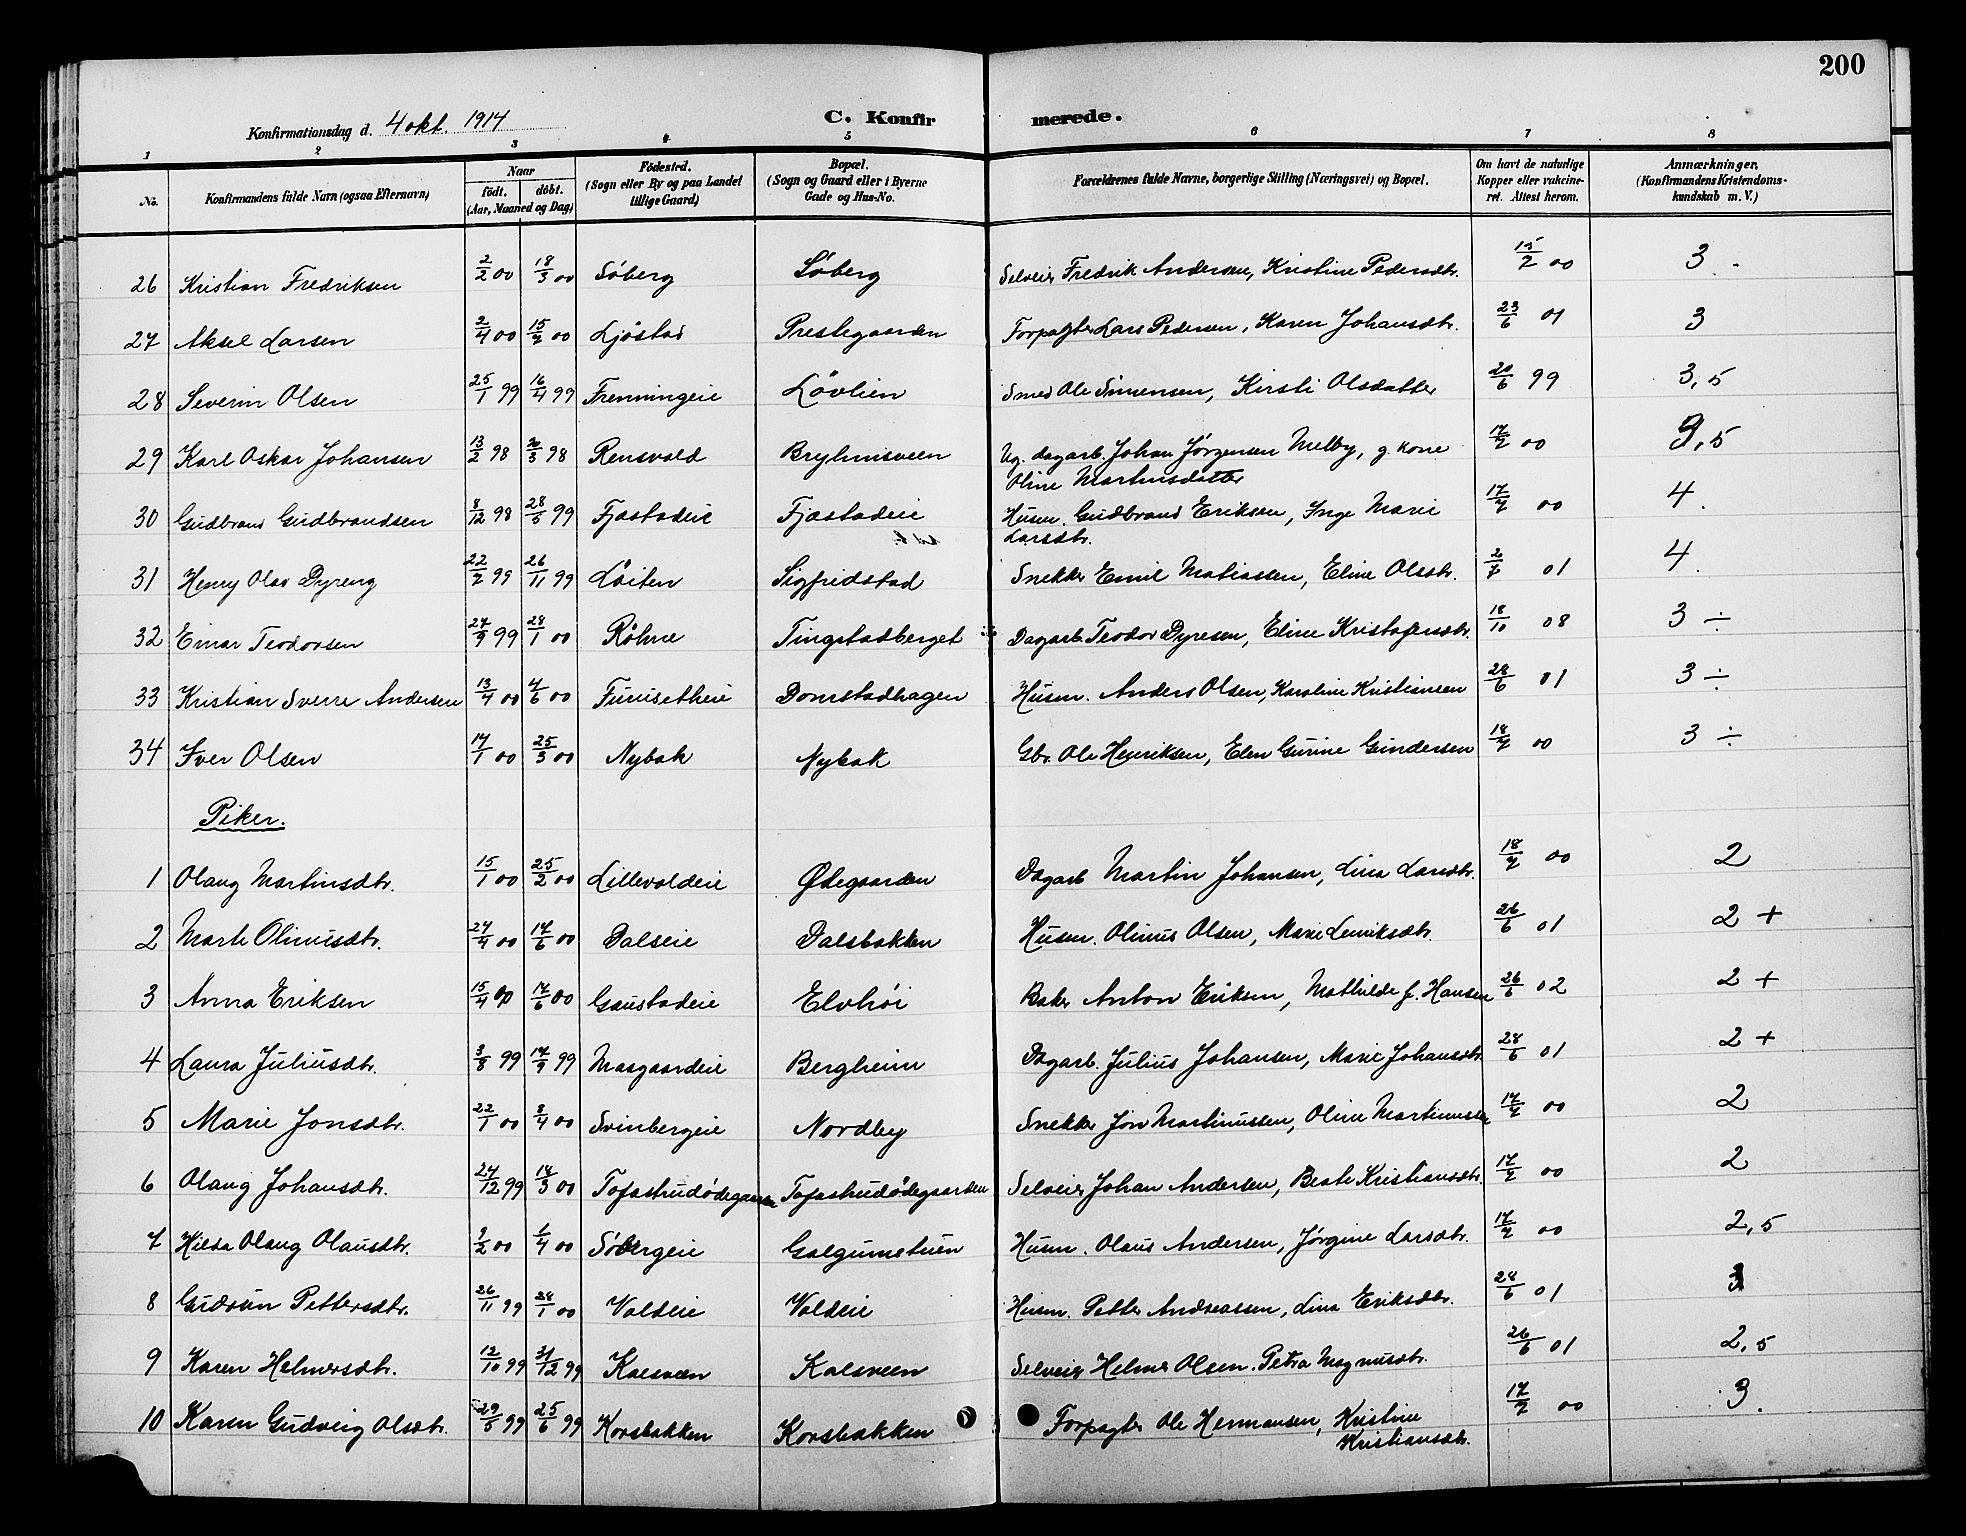 200
Konfirmationsdag d. 4 okt. 1914 C. Konfirmerede.
1 2 3 4 5 6 7 8
No. Konfirmandens fulde Navn (ogsaa Efternavn) Naar født. døbt. (Aar, Maaned og Dag) Fødested. (Sogn eller By og paa Landet tillige Gaard) Bopæl. (Sogn og Gaard eller i Byerne Gade og Hus-No. Forældrenes fulde Navne, borgerlige Stilling (Næringsvei) og Bopæl. Om havt de naturlige Kopper eller vakcineret. Attest herom. Anmærkninger. (Konfirmandens Kristendomskundskab m. V.)
26 Kristian Fredriksen 2/2 00 18/3 00 Söberg Söberg Selveier Fredrik Andersen, Kristine Pedersdtr. 15/7 00 3
27 Aksel Larsen 2/4 00 15/7 00 Ljöstad Prestegaarden Forpagter Lars Pedersen, Karen Johansdtr. 23/6 01 3
28 Severin Olsen 25/1 99 16/4 99 Frenningeie Lövlien Smed Ole Simensen, Kirsti Olsdatter 6 99 3,5
29 Karl Oskar Johansen 13/2 98 3 98 Rensvold Brylmisveen Ug. dagarb. Johan Jørgensen Melby, g. kone
Oline Martinsdatter 17/7 00 3,5
30 Gudbrand Gudbrandsen 8/12 98 28/5 99 Fjæstadeie Fjæstadeie Husm. Gudbrand Eriksen, Inge Marie
Larsdtr. 17/7 00 4.
31 Henry Olav Dyreng 22/7 99 26/11 99 Löiten Sigfridstad Snekker Emil Matiassen, Eline Olsdtr. 2/7 01 4.
32 Einar Teodorsen 27/9 99 28/1 00 Röhne Tingstadberget Dagarb. Teodor Dyresen, Eline Kristofersdtr. 18/10 08 3 ÷
33 Kristian Sverre Andersen 13/4 00 4/6 00 Furusetheie Domstadhagen Husm. Anders Olsen, Karoline Kristiansen 28/6 01 3 ÷
34 Iver Olsen 17/1 00 25/3 00 Nybak Nybak Gbr. Ole Henriksen, Elen Gurine Gundersen 18/7 00 3 ÷
Piker.
1 Olaug Martinsdtr. 15/1 00 25/2 00 Lillevoldeie Ødegaarden Dagarb Martin Johansen, Lina Larsdtr. 18/7 00 2
2 Marte Olinusdtr. 27/4 00 17/6 00 Dalseie Dalsbakken Husm. Olinus Olsen, Marie Lenriksdtr. 26/6 01 2 +
3 Anna Eriksen 15/4 00 17/6 00 Gaustadeie Elvhöi Baker Anton Eriksen, Mathilde f. Hansen 26/6 02 2 +
4 Laura Juliusdtr. 3/8 99 17/9 99 Masgaardeie Bergheim Dagarb. Julius Johansen, Marie Johansdtr. 28/6 01 2 +
5 Marie Jonsdtr. 22/1 00 8/4 00 Svinbergeie Nordby Snekker Jon Martinussen, Oline 17/7 00 2
6 Olaug Johansdtr. 27/12 99 18/3 00 Tofastrudödegaarden Tofastrudödegaarden Selveier Johan Andersen, Beate Kristiansdtr. 17/7 00 2
7 Hilda Olaug Olausdtr. 2 00 1/4 00 Söbergeie Galgumstuen Husm. Olaus Andersen, Jørgine Larsdtr. 17/7 00 2,5
8 Gudrun Pettersdtr. 26/11 99 28/1 00 Voldeie Voldeie Husm. Petter Andreassen, Lina Eriksdtr. 28/6 01 3
9 Karen Helmersdtr. 12/10 99 31/12 99 Kalsveen Kalsveen Selveier Helmer Olsen. Petra Magnusdtr. 26/6 01 2,5
10 Karen Gudveig Olsdtr. 29/5 99 25/6 99 Korsbakken Korsbakken Forpagter Ole Hermansen, Kristine
Kristiansdtr. 17/7 00 3.